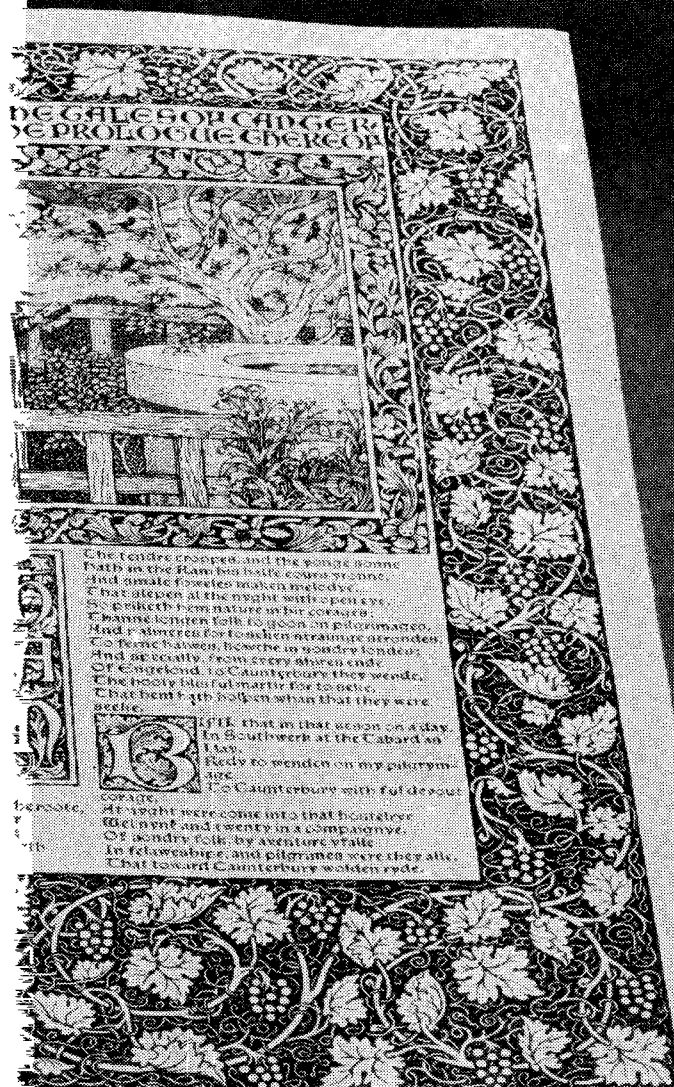 HE TALES OF CANTER
HE PROLOGUE THEREOF
The tendre croppes, and the yonge sonne
Hath in the Ram his halfe cours yronne,
And smale foweles maken melodye,
That slepen al the nyght with open eye,
So priketh hem nature in hir corages;
Thanne longen folk to goon on pilgrimages,
And palmeres for to seken straunge strondes,
To ferne halwes, kowthe in sondry londes;
And specially, from every shires ende
Of Engelond, to Caunterbury they wende,
The hooly blisful martir for to seke,
That hem hath holpen whan that they were
seeke.
BIFIL that in that seson on a day,
In Southwerk at the Tabard as
I lay,
Redy to wenden on my pilgrym-
age
To Caunterbury with ful devout
corage,
At nyght were come into that hostelrye
Wel nyne and twenty in a compaignye,
Of sondry folk, by aventure yfalle
In felaweshipe, and pilgrimes were they alle,
That toward Caunterbury wolden ryde.